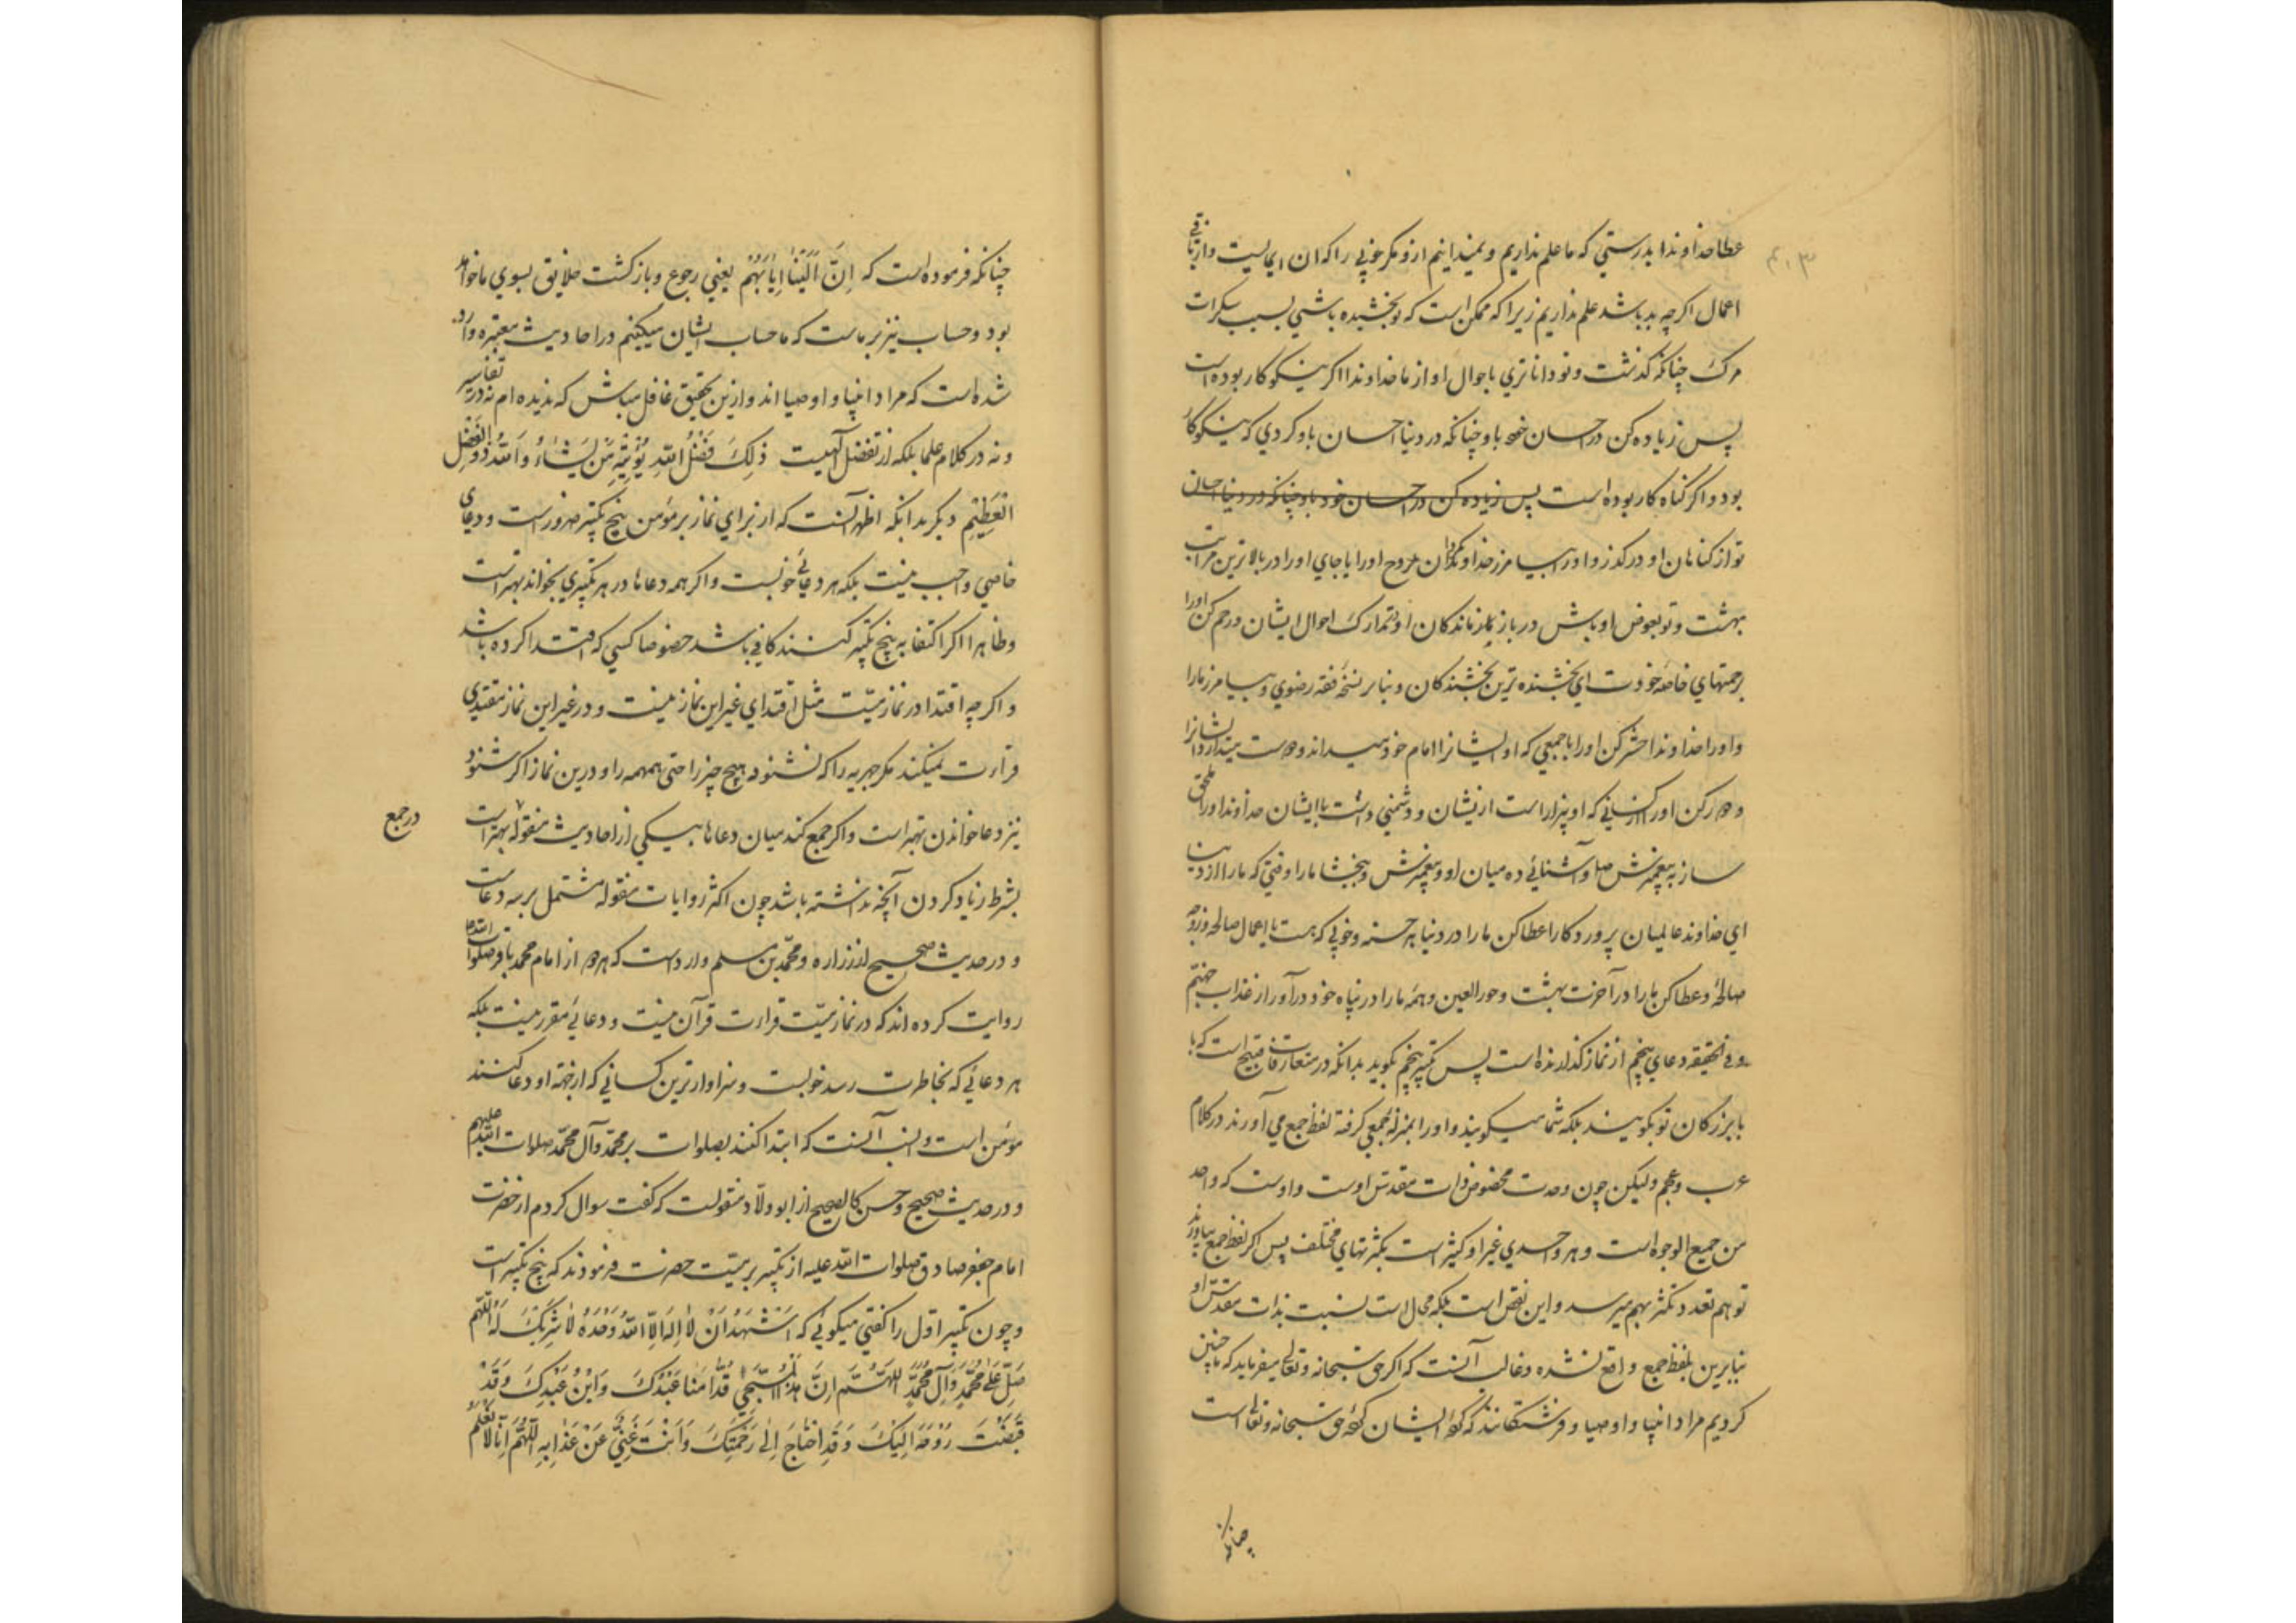 ۴۱۳
عطا خداوندا بدرستي که ما علم نداريم و نميدانيم ازو مکر خوبي را که ان ايمانست و از باقي
اعمال اکرچه بد باشد علم نداريم زيرا که ممکن است که تو بخشيده باشي بسبب سکرات
مرک چنانکه کذشت و تو داناتري باحوال او از ما خداوندا اکر نيکوکار بوده است
پس زياده کن در احسان خود با و چنانکه در دنيا احسان باو کردي که نيکوکار
بود و اکر کناه کار بوده است پس زياده کن در احسان خود باو چنانکه در دنيا احسان
تو از کناهان او در کذر و او را بيامرز خداوندا بکردان روح او را يا جاي او را در بالاترين مراتب
بهشت و تو بعوض او باش در بازماندکان او و تدارک احوال ايشان و رحم کن او را
برحمتهاي خاصه خودت اي بخشنده ترين بخشندکان و بنابر نسخه فقه رضوي و بيامرز ما را
و او را خداوندا حشر کن او را با جمعي که او ايشانرا امام خود ميداند و دوست ميدارد ايشانرا
و دور کن او را از کساني که او بيزار است ازيشان و دشمني داشت با ايشان خداوندا او را ملحق
ساز به پيغمبرش صلعم و آشنائي ده ميان او و پيغمبرش و ببخشا ما را وقتي که ما را از دنيا
اي خداوند عالميان پروردکارا عطا کن ما را در دنيا هر حسنه و خوبي که هست با اعمال صالحه و زوجه
صالحه و عطا کن ما را در آخرت بهشت و حور العين و همه ما را در پناه خود در آور از عذاب جهنم
و في الحقيقه دعاي پنجم از نماز کذارنده است پس تکبير پنجم بکويد بدانکه در متعارفات قبيح است که با
با بزرکان تو بکويند بلکه شما ميکويند و او را بمنزله جمعي کرفته لفظ جمع مي آورند در کلام
عرب و عجم و ليکن چون وحدت مخصوص ذات مقدس اوست و اوست که واحد
من جميع الوجوه است و هر واحدي غير او کثير است بکثرتهاي مختلف پس اکر لفظ جمع بياورند
توهم تعدد و تکثر بهم ميرسد و اين نقص است بلکه محال است نسبت بذات مقدس او
بنابرين بلفظ جمع واقع نشده و غالب آنست که اکر حق سبحانه و تعالي ميفرمايد که ما چنين
کرديم مراد انبيا و اوصيا و فرشتکانند که کرده ايشان کرده حق سبحانه و تعالي است
چنانکه
چنانکه فرموده است که اِنَّ اِلَيْنا اِيابَهُمْ يعني رجوع و باز کشت خلايق بسوي ما خواهد
بود و حساب نيز بر ماست که ما حساب ايشان ميکنيم در احاديث معتبره وارد
شده است که مراد انبيا و اوصيا اند و ازين تحقيق غافل مباش که نديده ام نه در تفاسير
و نه در کلام علما بلکه از تفضل الهيست ذلِکَ فَضْلُ اللّهِ يُؤْتيهِ مَنْ يَشاءُ وَ اللّهُ ذُو الفَضْلِ
الْعَظيمِ ديکر بدانکه اظهر آنست که از براي نماز بر مؤمن پنج تکبير ضرور است و دعاي
خاصي واجب نيست بلکه هر دعائي خوبست و اکر همه دعاها در هر تکبيري بخواند بهتر است
و ظاهرا اکر اکتفا به پنج تکبير کنند کافي باشد خصوصا کسي که اقتدا کرده باشد
و اکرچه اقتدا در نماز ميّت مثل اقتداي غير اين نماز نيست و در غير اين نماز مقتدي
قراءت نميکند مکر جهريه را که نشنود هيچ چيز را حتي همهمه را و درين نماز اکر شنود
نيز دعا خواندن بهتر است و اکر جمع کند ميان دعاها بيکي از احاديث منقوله بهتر است
در جمع
بشرط زياد کردن آنچه نداشته باشد چون اکثر روايات منقوله مشتمل بر سه دعاست
و در حديث صحيح از زراره و محمّد بن مسلم وارد است که هر دو از امام محمد باقر صلوات الله
روايت کرده اند که در نماز ميّت قراءت قرآن نيست و دعائي مقرر نيست بلکه
هر دعائي که بخاطرت رسد خوبست و سزاوارترين کساني که از جهة او دعا کنند
مؤمن است و انسب آنست که ابتدا کنند بصلوات بر محمّد و آل محمّد صلوات الله عليهم
و در حديث صحيح و حسن کالصحيح از ابو ولّاد منقولست که کفت سوال کردم از حضرت
امام جعفر صادق صلوات الله عليه از تکبير بر ميّت حضرت فرمودند که پنج تکبير است
و چون تکبير اول را کفتي ميکوئي که اَشْهَدُ اَنْ لا اِلهَ اِلاَّ اللّهُ وَحْدَهُ لا شَريکَ لَهُ اَللّهُمَّ
صَلِّ عَلي مُحَمَّدٍ وَ آلِ مُحَمَّدٍ اَللّهُمَّ اِنَّ هذَا الْمُسَجّي قُدّامَنا عَبْدُکَ وَ ابْنُ عَبْدِکَ وَ قَدْ
قَبَضْتَ رُوحَهُ اِلَيْکَ وَ قَدِ احْتاجَ اِلي رَحْمَتِکَ وَ اَنْتَ غَنِيٌّ عَنْ عَذابِهِ اَللّهُمَّ اِنّا لا نَعْلَمُ